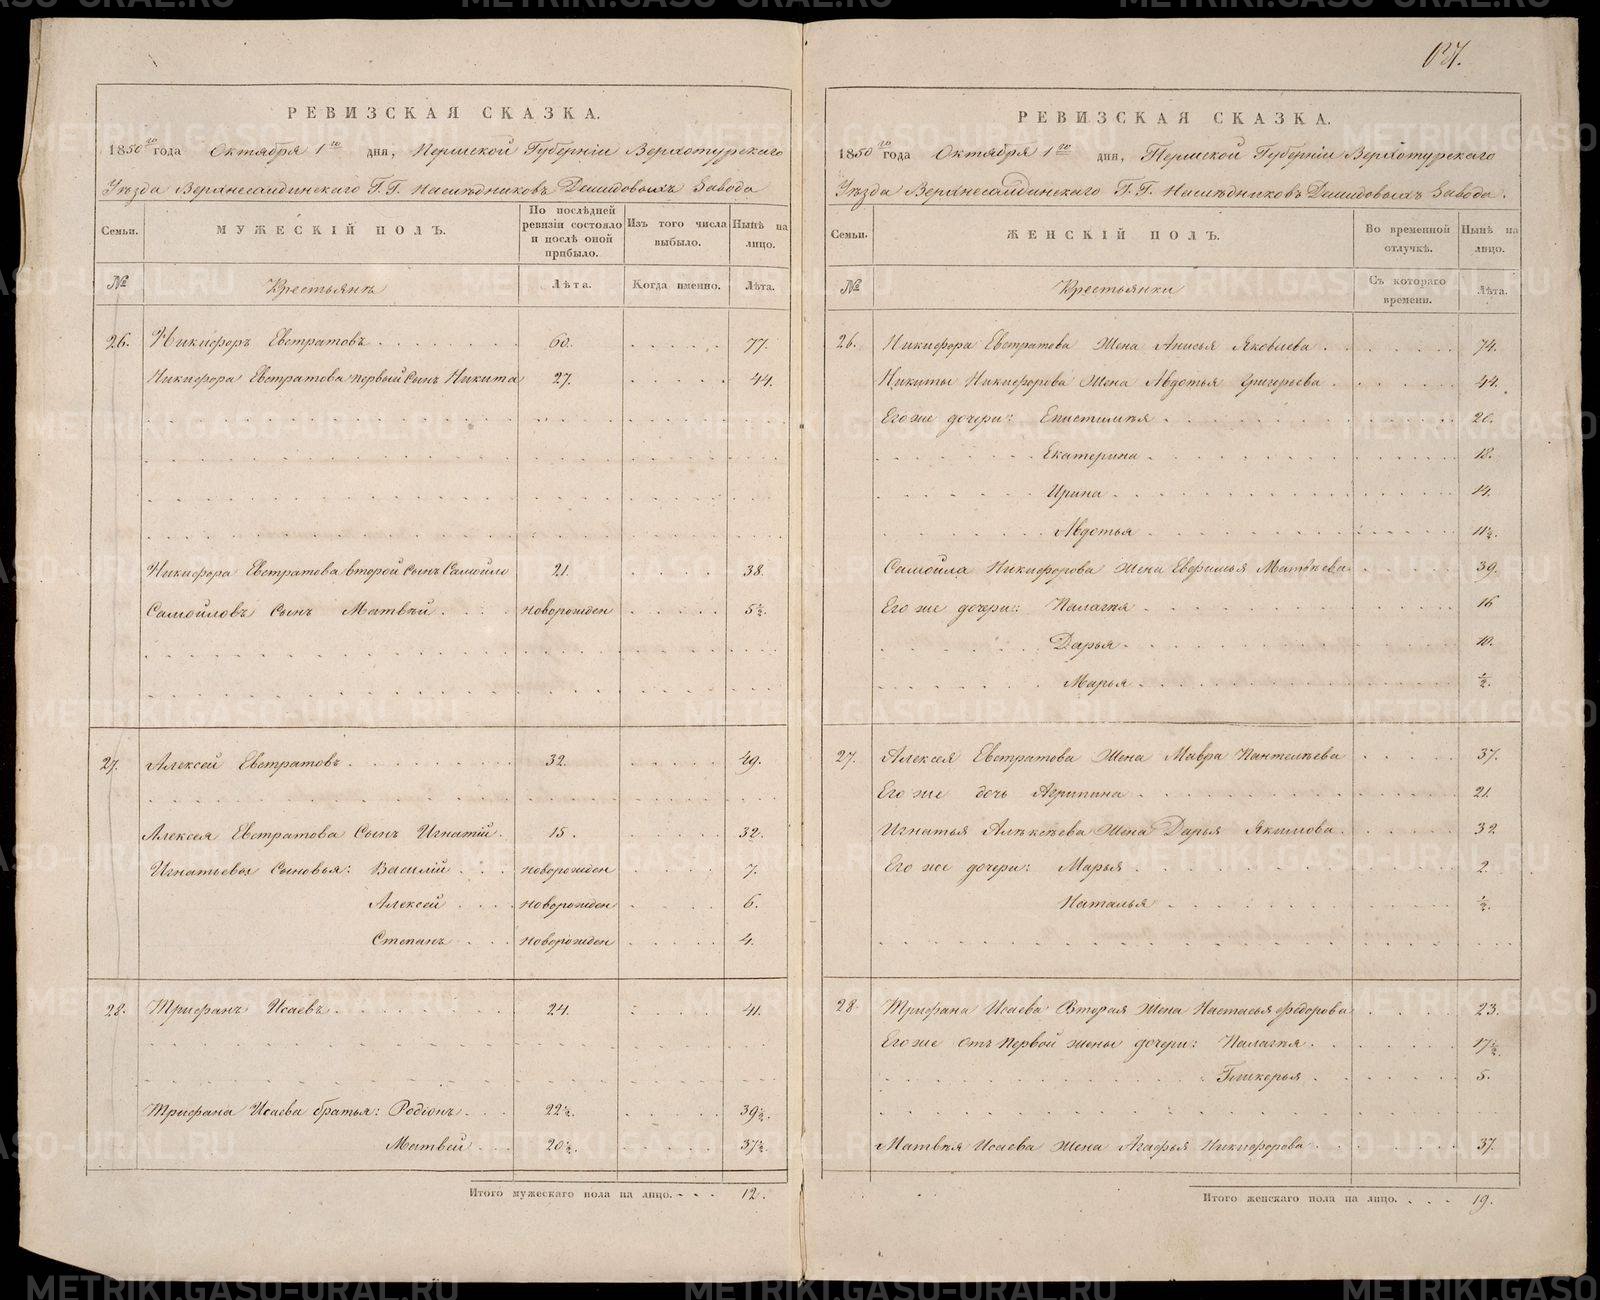 РЕВИЗСКАЯ СКАЗКА.
1850го года Октября 1го дня, Пермской Губерніи Верхотурскаго
Уѣзда Верхнесалдинскаго Г.Г. Наслѣдниковъ Демидовыхъ Завода
Семьи.
МУЖЕСКІЙ ПОЛЪ.
По послѣдней ревизіи состояло и послѣ оной прибыло.
Изъ того числа выбыло.
Нынѣ на лицо.
№
Крестьянъ
Лѣта.
Когда именно.
Лѣта.
26. Никифоръ Евстратовъ 60. 77.
Никифора Евстратова первый сынъ Никита 27. 44.
Никифора Евстратова второй сынъ Самойло 21. 38.
Самойловъ сынъ Матвѣй новорожден 5½.
27. Алексей Евстратовъ 32. 49.
Алексея Евстратова Сынъ Игнатій 15. 32.
Игнатьевы Сыновья: Василій новорожден 7.
Алексей новорожден 6.
Степанъ новорожден 4.
28. Трифанъ Исаевъ 24. 41.
Трифана Исаева братья: Родіонъ 22½. 39½.
Матвей 20½. 37½.
Итого мужескаго пола на лицо. 12.
РЕВИЗСКАЯ СКАЗКА.
1850го года Октября 1го дня, Пермской Губерніи Верхотурскаго
Уѣзда Верхнесалдинскаго Г.Г. Наслѣдниковъ Демидовыхъ Завода.
Семьи.
ЖЕНСКІЙ ПОЛЪ.
Во временной отлучкѣ.
Нынѣ на лицо.
№
Крестьянки
Съ котораго времени.
Лѣта.
26. Никифора Евстратова Жена Анисья Яковлева 74.
Никиты Никифорова Жена Авдотья Григорьева 44.
Его же дочери: Епистимѣя 20.
Екатерина 18.
Ирина 14.
Авдотья 11½.
Самойла Никифорова жена Евфимья Матвѣева 39.
Его же дочери: Палагѣя 16
Дарья 10.
Марья ½.
27. Алексея Евстратова Жена Мавра Пантелѣева 37.
Его же дочь Агрипина 21.
Игнатья Алѣксѣева Жена Дарья Якимова 32.
Его же дочери: Марья 2.
Наталья ½.
28. Трифана Исаева Вторая Жена Настасья Федорова 23.
Его же отъ первой жены дочери: Палагѣя 17½.
Гликерья 5.
Матвѣя Исаева Жена Агафья Никифорова 37.
Итого женскаго пола на лицо. 19.
METRIKI.GASO-URAL.RU